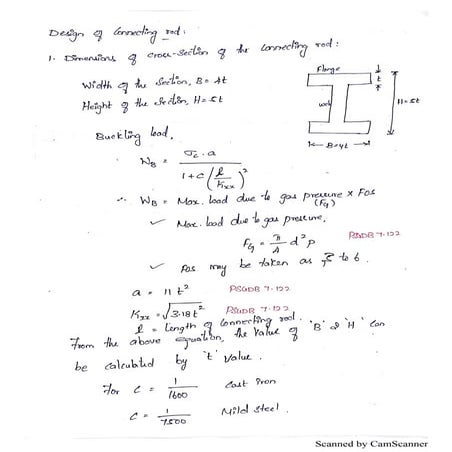 Design of Connecting rod:
1. Dimensions of cross-section of the Connecting rod:
Flange
Width of the Section, B = 4t
t
Height of the Section, H = 5t
web
H=5t
B=4t
Buckling load,
W_B = σc·a / (1 + C (l/Kxx)²)
∴ W_B = Max. load due to gas pressure (FG) × FOS
✓ Max. load due to gas pressure,
FG = π/4 d² P PSGDB 7.122
✓ FOS may be taken as 5 to 6.
a = 11t² PSGDB 7.122
Kxx = √3.18t² PSGDB 7.122
l = Length of Connecting rod.
From the above equation, the value of 'B' & 'H' can
be calculated by 't' value.
For C = 1/1600 Cast Iron
C = 1/7500 Mild Steel.
Scanned by CamScanner